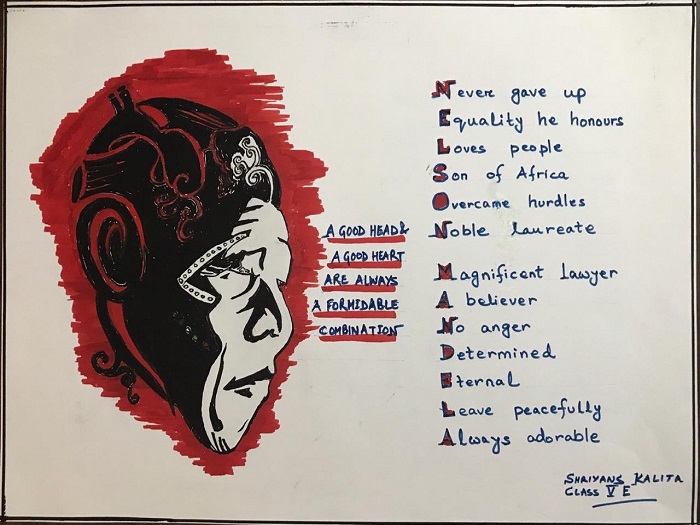 A GOOD HEAD &
A GOOD HEART
ARE ALWAYS
A FORMIDABLE
COMBINATION
Never gave up
Equality he honours
Loves people
Son of Africa
Overcame hurdles
Noble laureate
Magnificent Lawyer
A believer
No anger
Determined
Eternal
Leave peacefully
Always adorable
SHRIYANS KALITA
CLASS V E